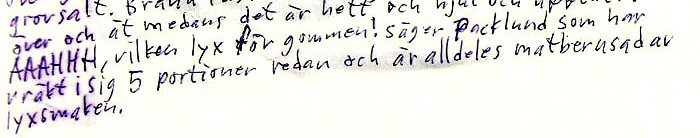 grovsalt.
över och ät medans det är hett och njut och
AAAHHH, vilken lyx för gommen! säger Packlund som har
vräkt i sig 5 portioner redan och är alldeles matberusad av
lyxsmaken.